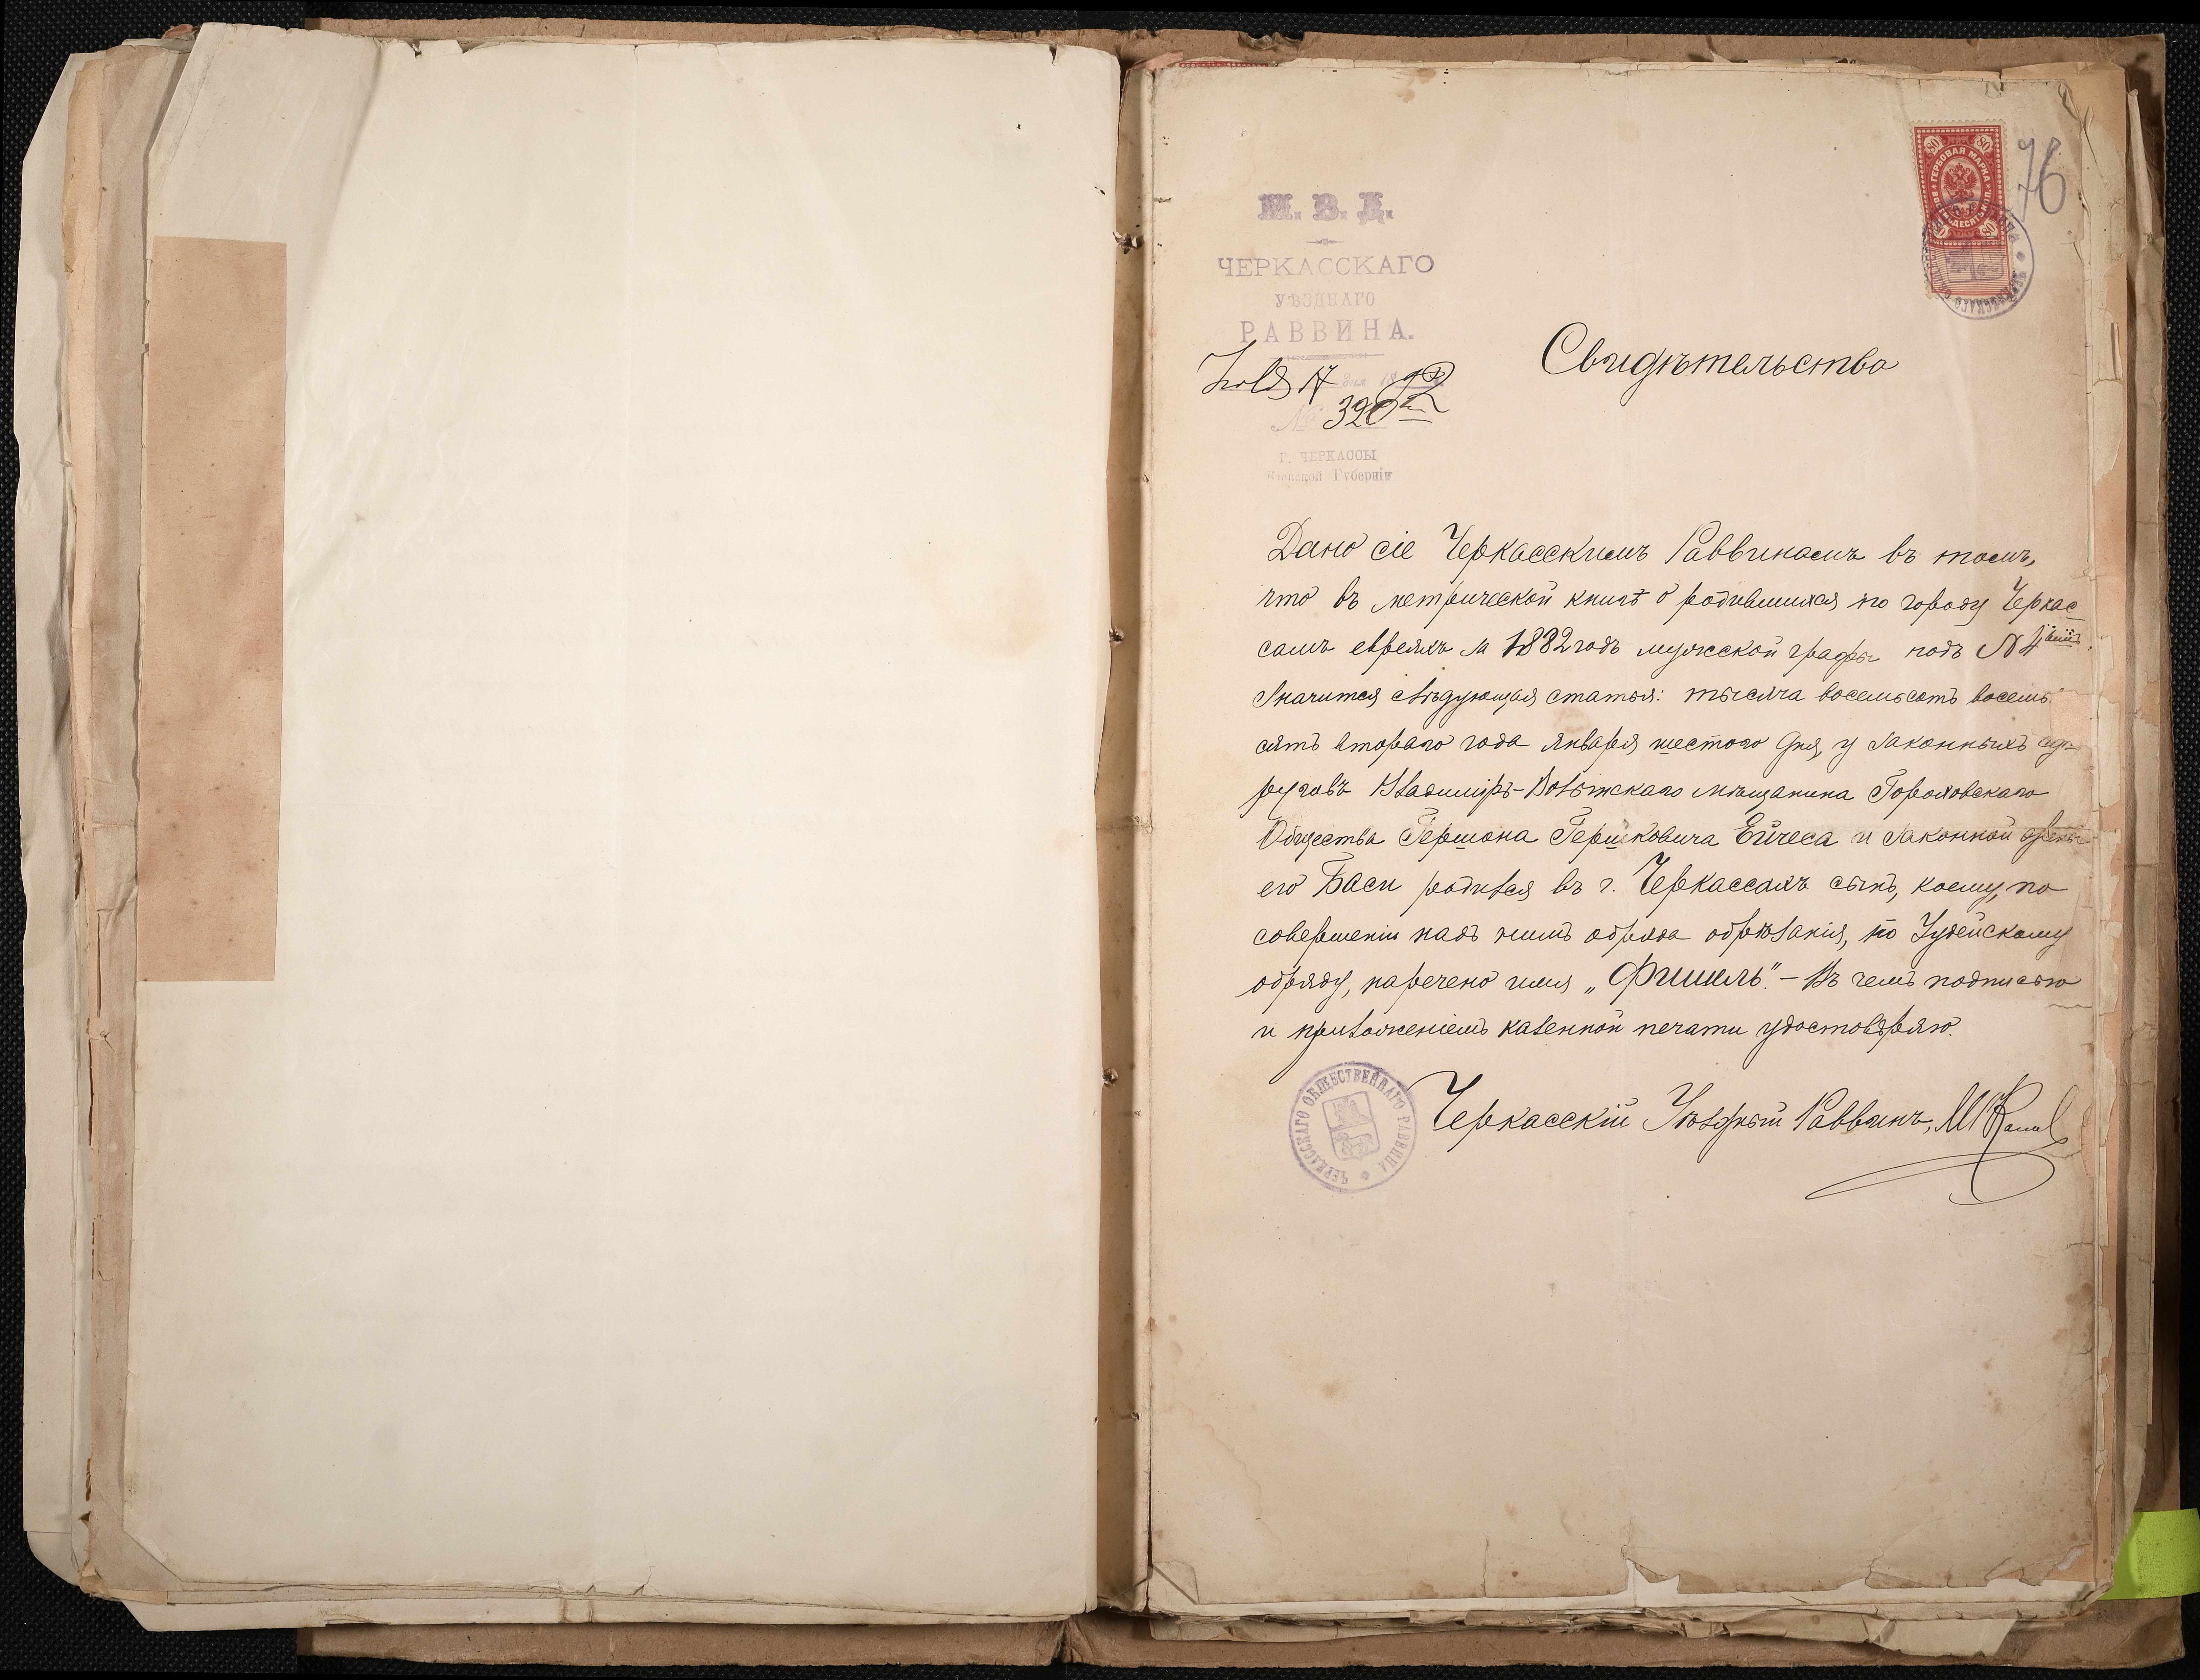 76
ГЕРБОВАЯ МАРКА
80
М. В. Д.
ЧЕРКАССКАГО
УѢЗДНАГО
РАВВИНА.
Іюля 17 дня 1892
№ 320
Г. ЧЕРКАССЫ
Кіевской Губерніи
Свидѣтельство
Дано сіе Черкасскимъ Раввиномъ въ томъ,
что въ метрической книгѣ о родившихся по городу Черкас
самъ евреяхъ за 1882 годъ мужской графы подъ № 4
значится слѣдующая статья: тысяча восемьсотъ восемь
сятъ втораго года января шестого дня, у законныхъ суп
руговъ Владиміръ-Волынскаго мѣщанина Гороховскаго
Общества Гершона Гершковича Ейчеса и законной жены
его Баси родился въ г. Черкассахъ сынъ, коему, по
совершеніи надъ нимъ обряда обрѣзанія, по Іудейскому
обряду, наречено имя „Фишель". — Въ чемъ подписью
и приложеніемъ казенной печати удостовѣряю.
Черкасскій Уѣздный Раввинъ,
ЧЕРКАССКАГО ОБЩЕСТВЕННАГО РАВВИНА